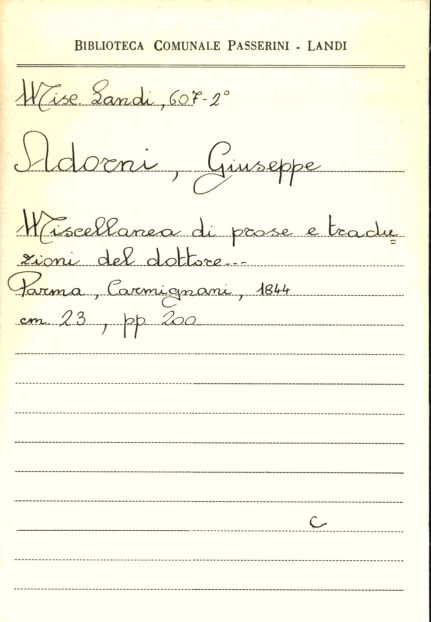 BIBLIOTECA COMUNALE PASSERINI - LANDI
Misc. Landi, 607-2°
Adorni, Giuseppe
Miscellanea di prose e tradu=
zioni del dottore...
Parma, Carmignani, 1844
cm. 23, pp 200
C